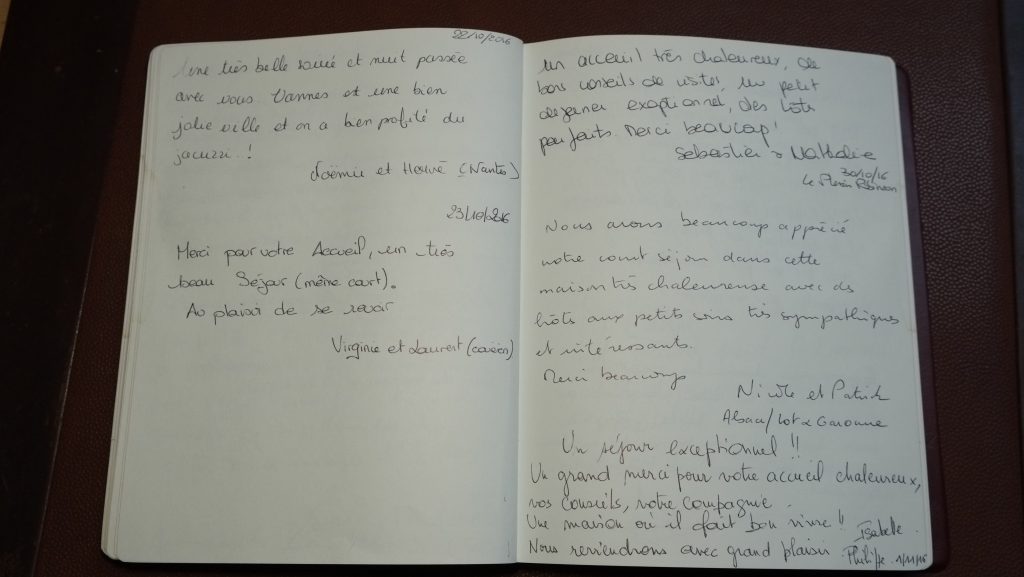 22/10/2016
Une très belle soirée et nuit passée
avec vous. Vannes et une bien
jolie ville et on a bien profité du
jacuzzi..!
Noëmie et Hervé (Nantes)
23/10/2016
Merci pour votre Accueil, un très
beau Séjour (même court).
Au plaisir de se revoir
Virginie et Laurent
un acceuil très chaleureux, de
bons conseils de visites, un petit
dejeuner exceptionnel, des hôtes
parfaits. Merci beaucoup!
Sebastien & Nathalie
30/10/16
Le Plessis Robinson
Nous avons beaucoup apprécié
notre court séjour dans cette
maison très chaleureuse avec des
hôtes aux petits soins très sympathiques
et intéressants.
Merci beaucoup
Nicole et Patrick
Alsace/Lot & Garonne
Un séjour exceptionnel !!
Un grand merci pour votre accueil chaleureux,
vos conseils, votre compagnie.
Une maison où il fait bon vivre !! Isabelle
Nous reviendrons avec grand plaisir. Philippe 1/11/16